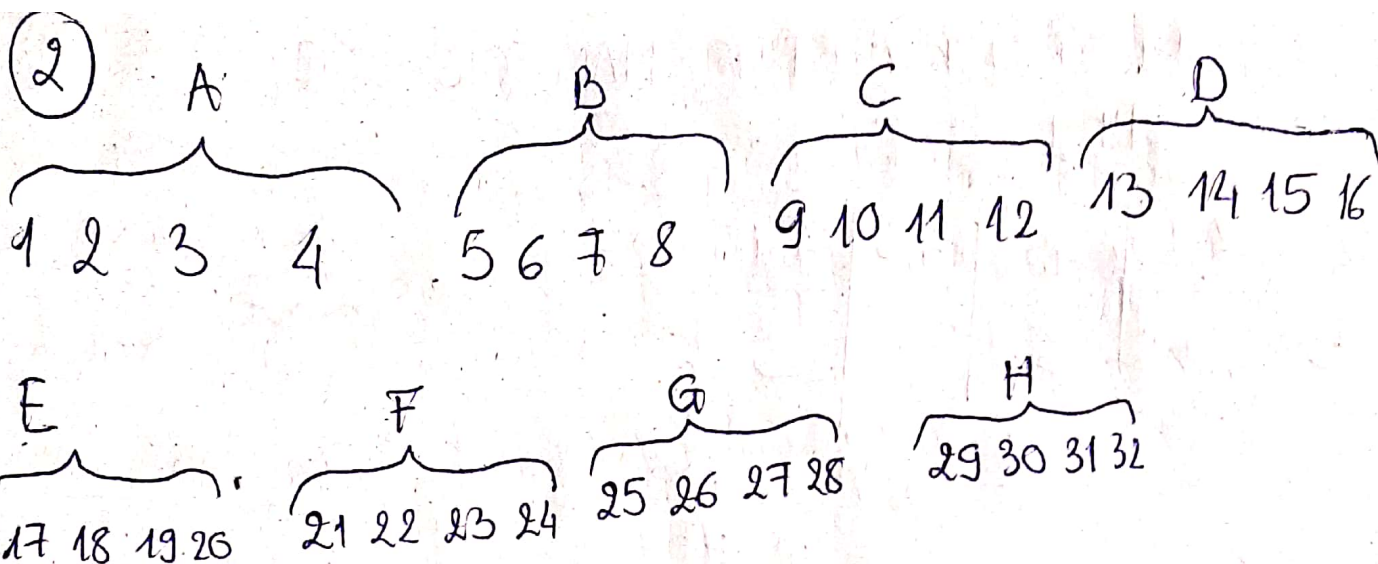 2
A B C D
1 2 3 4 5 6 7 8 9 10 11 12 13 14 15 16
E F G H
17 18 19 20 21 22 23 24 25 26 27 28 29 30 31 32